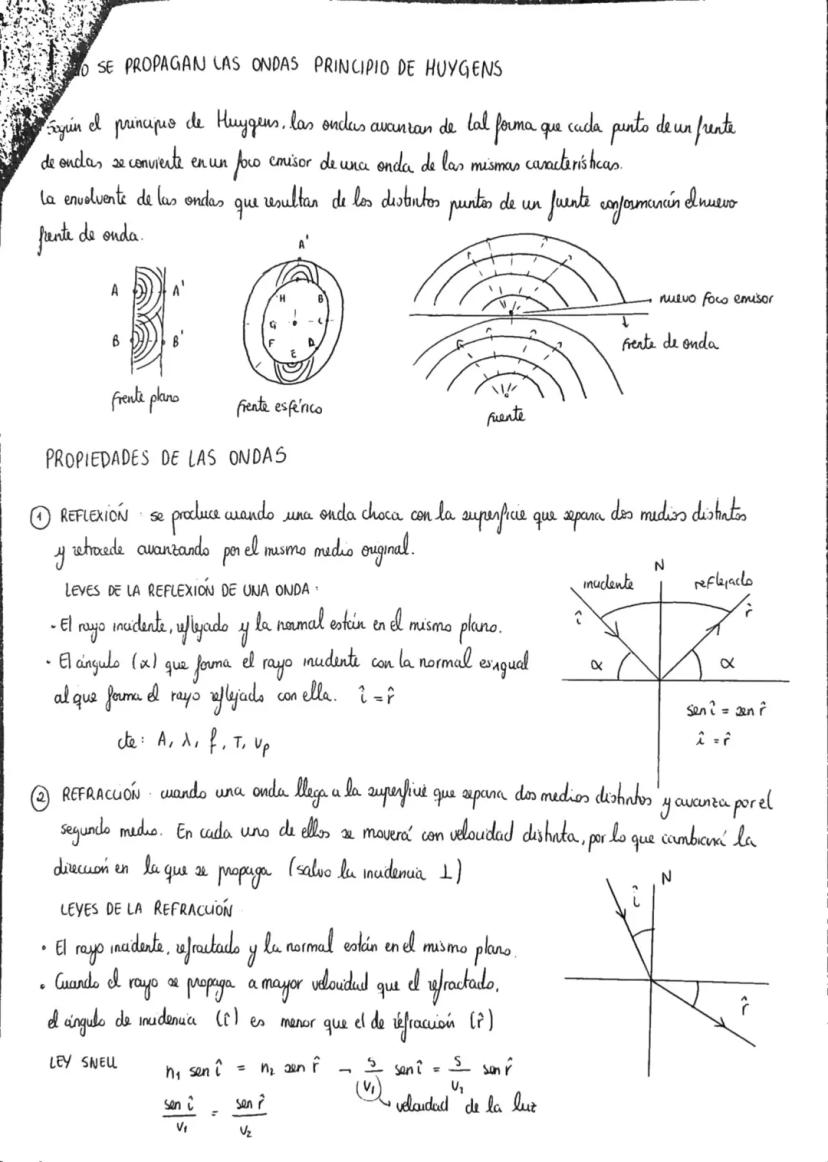 SE PROPAGAN LAS ONDAS PRINCIPIO DE HUYGENS
Según el principio de Huygens, las ondas avanzan de tal forma que cada punto de un frente
de ondas se convierte en un foco emisor de una onda de las mismas características.
La envolvente de las ondas que resultan de los distintos puntos de un fuente conformarán el nuevo
frente de onda.
A A'
B B'
frente plano
A'
H B
G C
F D
E
frente esférico
nuevo foco emisor
frente de onda
fuente
PROPIEDADES DE LAS ONDAS
① REFLEXIÓN se produce cuando una onda choca con la superficie que separa dos medios distintos
y retrocede avanzando por el mismo medio original.
LEYES DE LA REFLEXIÓN DE UNA ONDA:
· El rayo incidente, reflejado y la normal están en el mismo plano.
· El ángulo (α) que forma el rayo incidente con la normal es igual
al que forma el rayo reflejado con ella. î = r̂
cte: A, λ, f, T, vp
N
incidente reflejado
î r̂
α α
sen î = sen r̂
î = r̂
② REFRACCIÓN cuando una onda llega a la superficie que separa dos medios distintos y avanza por el
segundo medio. En cada uno de ellos se moverá con velocidad distinta, por lo que cambiará la
dirección en la que se propaga (salvo la incidencia ⊥)
LEYES DE LA REFRACCIÓN
· El rayo incidente, refractado y la normal están en el mismo plano.
· Cuando el rayo se propaga a mayor velocidad que el refractado,
el ángulo de incidencia (î) es menor que el de refracción (r̂)
N
î
r̂
LEY SNELL n₁ sen î = n₂ sen r̂ → s/v₁ sen î = s/v₂ sen r̂
velocidad de la luz
sen î/v₁ = sen r̂/v₂